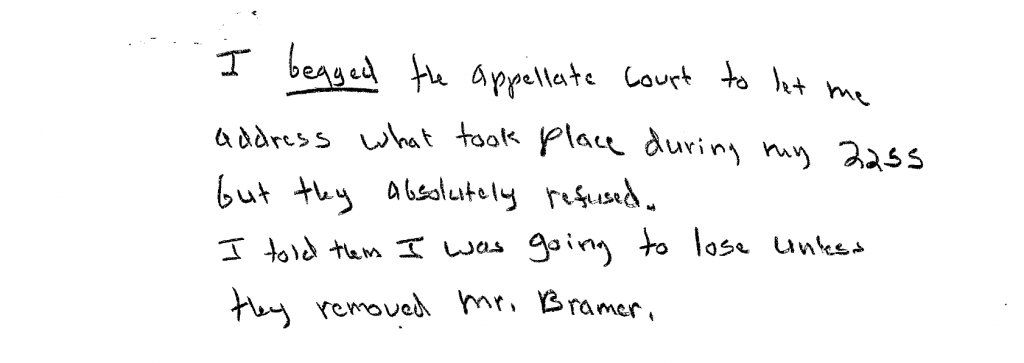 I begged the appellate Court to let me
address what took place during my 2255
but they absolutely refused.
I told them I was going to lose unless
they removed Mr. Bramer.